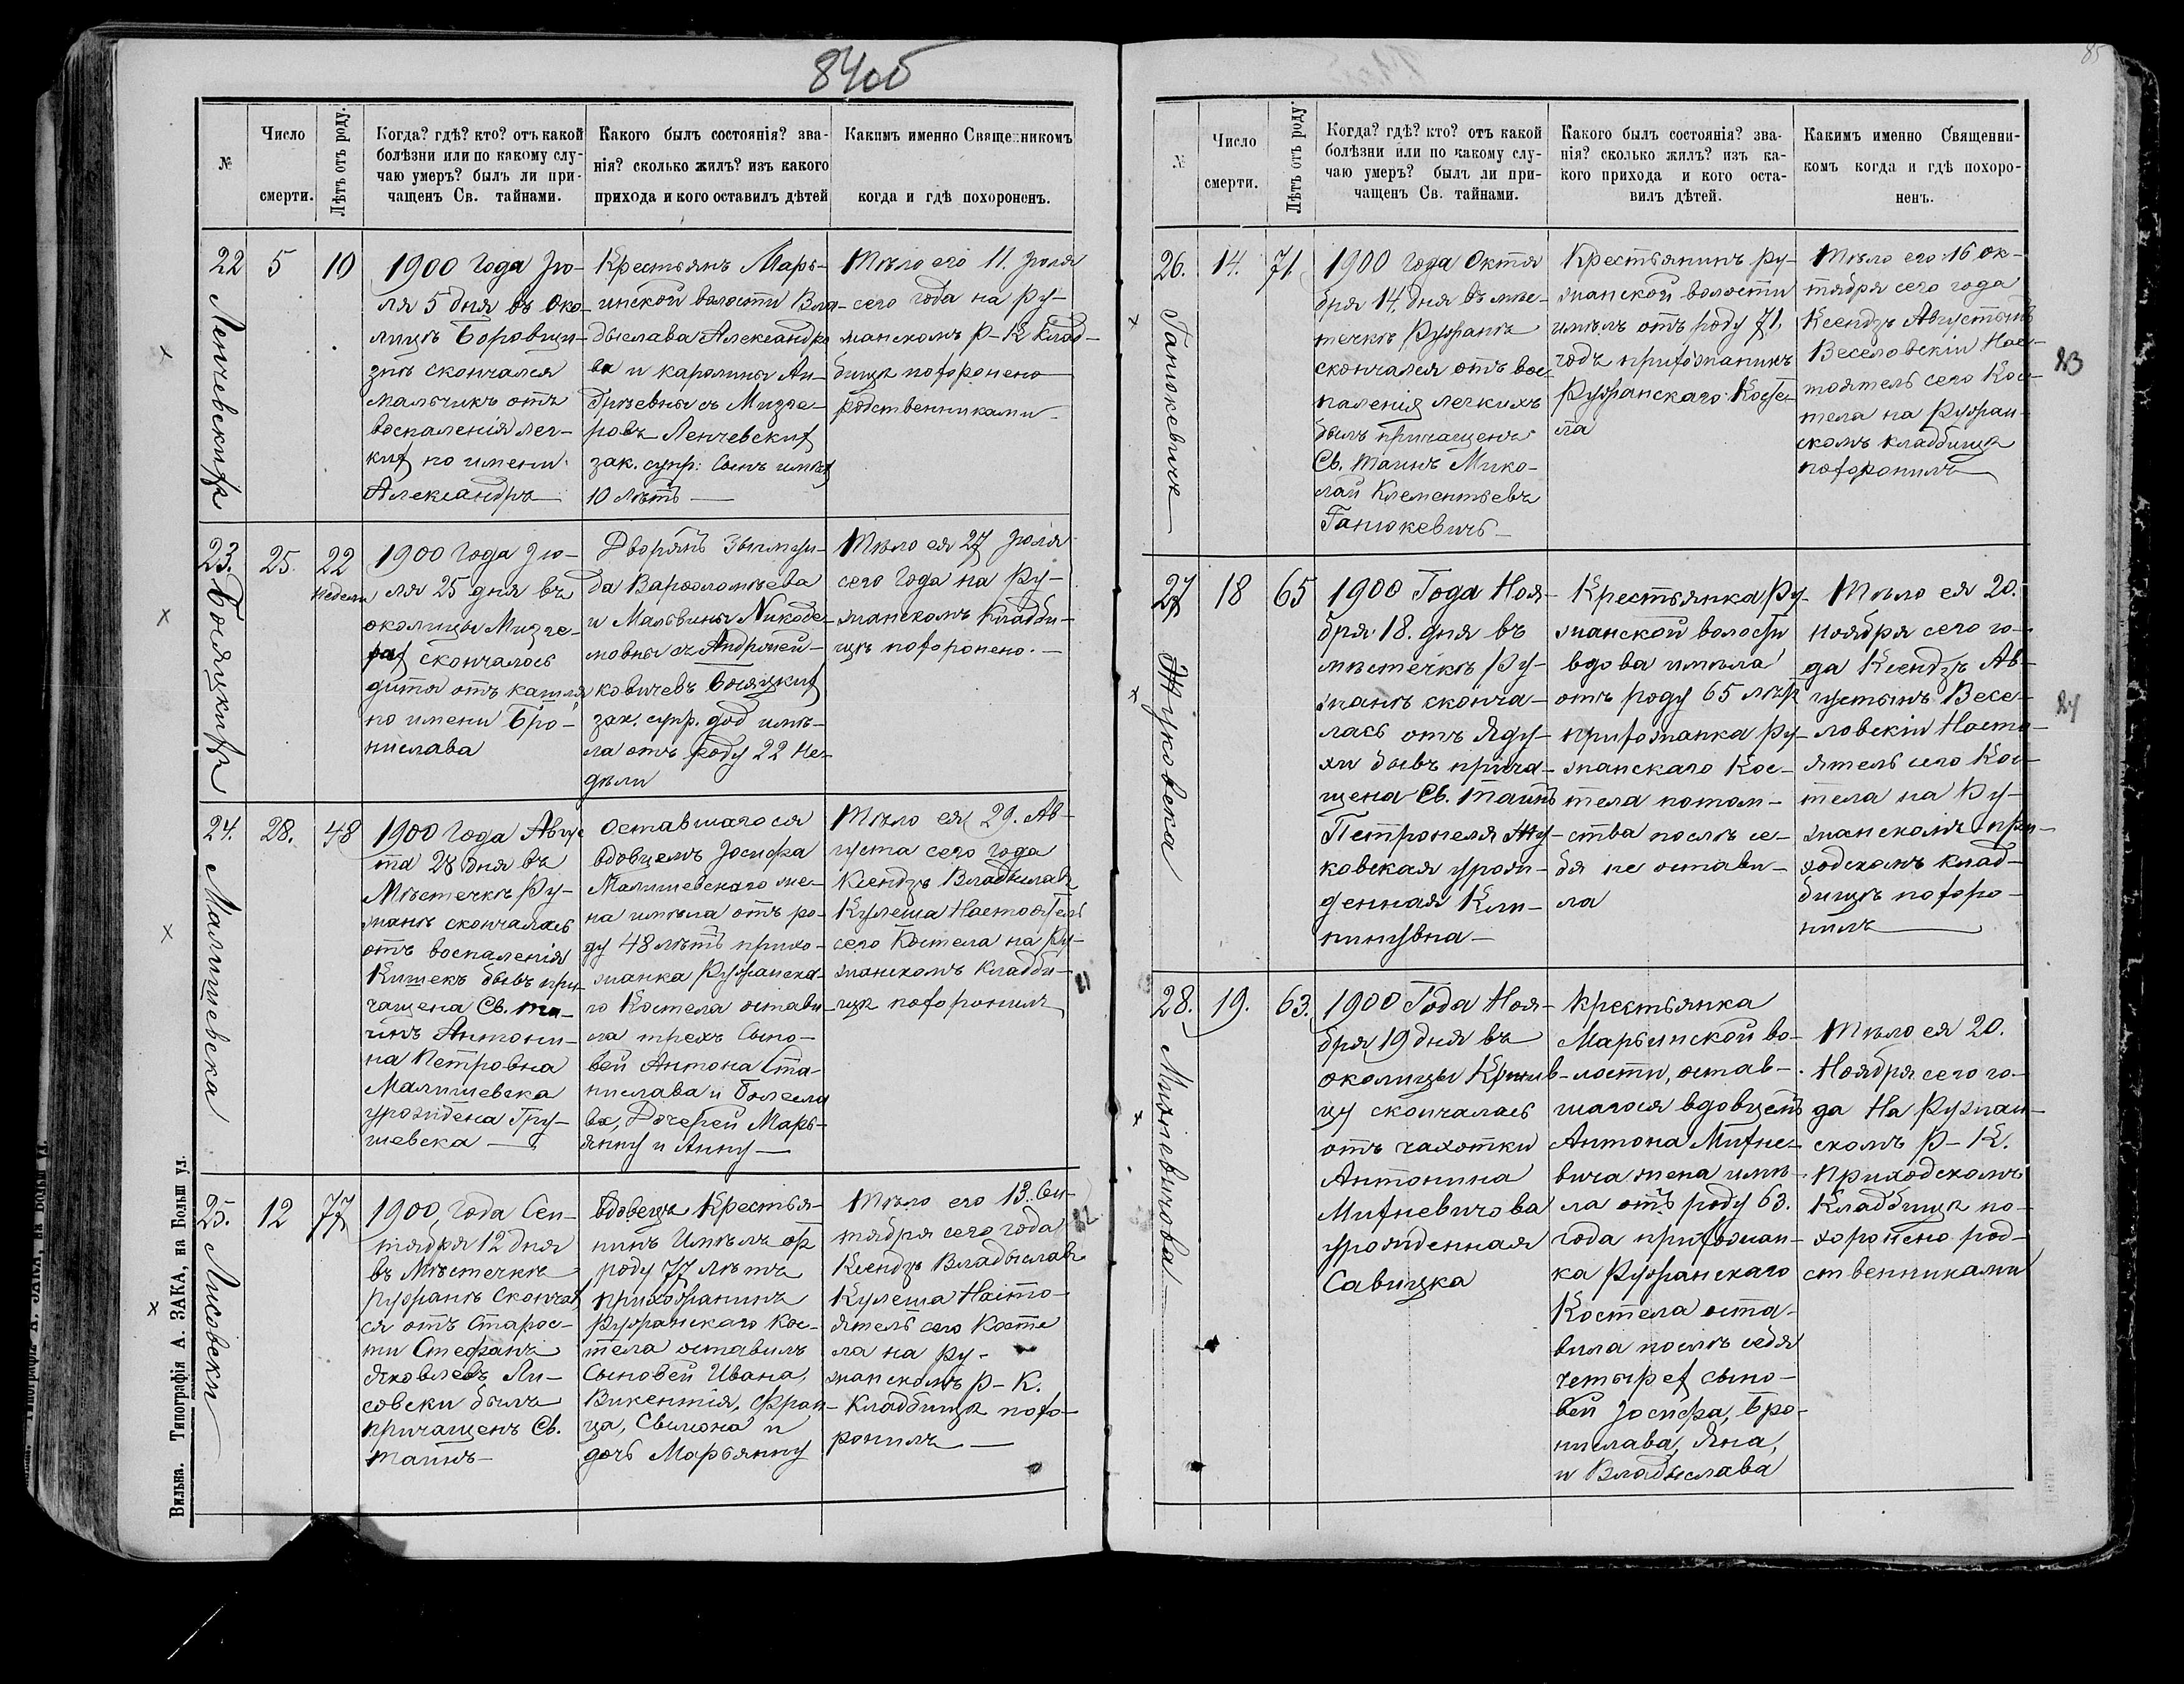 84об
№
Число
смерти.
Лѣтъ отъ роду.
Когда? гдѣ? кто? отъ какой
болѣзни или по какому слу-
чаю умеръ? былъ ли при-
чащенъ Св. тайнами.
Какого былъ состоянія? зва-
нія? сколько жилъ? изъ какого
прихода и кого оставилъ дѣтей
Какимъ именно Священникомъ
когда и гдѣ похороненъ.
22
Ленчевскихъ
5
10
1900 Года Ію-
ля 5 дня въ Око-
лицѣ Боровщи-
знѣ скончался
мальчикъ отъ
воспаленія лег-
кихъ по имени
Александръ
Крестьянъ Марь-
инской волости Вла-
дыслава Александро
ва и Каролины Ан-
дреевны съ Мизге-
ровъ Ленчевскихъ
зак. супр: Сынъ имѣя
10 лѣтъ
Тѣло его 11. Іюля
сего года на Ру-
жанскомъ Р-К Клад-
бищѣ похоронено
родственниками
23.
Богяцкихъ
25.
22
недели
1900 Года Ію-
ля 25 дня въ
околицы Мизге-
рах скончалось
дитя отъ кашля
по имени Бро-
нислава
Дворянъ Зыгмун-
да Варфоломѣева
и Мальвины Никоде-
мовны съ Андрпей-
ковичевъ Богяцкихъ
зак. супр. доч имѣ-
ла отъ роду 22 не-
дѣли
Тѣло ея 27 Іюля
сего Года на Ру-
жанскомъ Кладби-
щѣ похоронено.
24.
Малишевска
28.
48
1900 Года Авгус
та 28 дня въ
Мѣстечкѣ Ру-
жанѣ скончалась
отъ воспаленія
Кишекъ бывъ при-
чащена Св. та-
инъ Антони-
на Петровна
Малишевска
урождена Гру-
шевска
Оставшагося
вдовцемъ Іосифа
Малишевскаго же-
на имѣла отъ ро-
ду 48 лѣтъ прихо-
жанка Ружанска-
го Костела остави
ла трехъ Сыно-
вей Антона Ста-
нислава и Болесла
ва, Дочерей Марь-
янну и Анну
Тѣло ея 29. Ав-
густа сего года
Ксендзъ Владыславъ
Кулеша Настоятель
сего Костела на Ру-
жанскомъ Кладби-
щѣ похоронилъ
25.
Лисовски
12
77
1900, года Сен-
тября 12 дня
въ Мѣстечкѣ
Ружанѣ Скончал
ся отъ Старос-
ти Стефанъ
Яковлевъ Ли-
совски былъ
причащенъ Св.
таинъ
вдовецъ Крестья-
нинъ Имѣлъ от
роду 77 лѣтъ
прихожанинъ
Ружанскаго Кос-
тела оставилъ
Сыновей Ивана,
Викентія, Фран-
ца, Свымона и
дочь Марьянну
Тѣло его 13. Сен-
тября сего года
Ксендзъ Владыславъ
Кулеша Насто-
ятель сего Косте
ла на Ру-
жанскомъ Р-К.
Кладбищѣ похо-
ронилъ
Вильна. Типографія А. ЗАКА, на Больш ул.
85
№
Число
смерти.
Лѣтъ отъ роду.
Когда? гдѣ? кто? отъ какой
болѣзни или по какому слу-
чаю умеръ? былъ ли при-
чащенъ Св. тайнами.
Какого былъ состоянія? зва-
нія? сколько жилъ? изъ ка-
кого прихода и кого оста-
вилъ дѣтей.
Какимъ именно Священни-
комъ когда и гдѣ похоро-
ненъ.
26.
Ганюкевичъ
14.
71
1900 года Октя
бря 14, дня въ мѣс-
течкѣ Ружанѣ
скончался отъ вос
паленія легкихъ
былъ причащенъ
Св. таинъ Мико-
лай Клементьевъ
Ганюкевичъ
Крестьянинъ Ру-
жанской волости
имѣлъ отъ роду 71,
годъ прихожанинъ
Ружанскаго Косте
ла
Тѣло его 16 Ок-
тября сего года
Ксендзъ Августынъ
Веселовскій Нас-
тоятель сего Кос-
тела на Ружан-
скомъ кладбищѣ
похоронилъ
27
Жуковска
18
65
1900 Года Ноя-
бря 18. дня въ
мѣстечкѣ Ру-
жанѣ сконча-
лась отъ Яду-
хи бывъ прича-
щена Св. таинъ
Петронеля Жу-
ковская урож-
денная Кли-
нинувна
Крестьянка Ру-
жанской волости
вдова имѣла
отъ роду 65 лѣтъ
прихожанка Ру-
жанскаго Кос-
тела потом-
ства послѣ се-
бя не остави-
ла
Тѣло ея 20.
Ноября сего го-
да Ксендзъ Ав-
густынъ Весе-
ловскій Насто-
ятель сего Кос-
тела на Ру-
жанскомъ при-
ходскомъ клад-
бищѣ похоро-
нилъ
28.
Михневичова
19.
63.
1900 Года Ноя-
бря 19 дня въ
околицы
цу скончалась
отъ чахотки
Антонина
Михневичова
урожденная
Савицка
Крестьянка
Марьинской во-
лости, остав-
шагося вдовцемъ
Антона Михне-
вича жена имѣ-
ла отъ роду 63.
года прихожан-
ка Ружанскаго
Костела оста-
вила послѣ себя
четырех сыно-
вей Іосифа, Бро-
нислава, Яна,
и Владыслава
Тѣло ея 20.
Ноября сего го-
да На Ружан-
скомъ Р-К.
Приходскомъ
Кладбищѣ по-
хоронено род-
ственниками